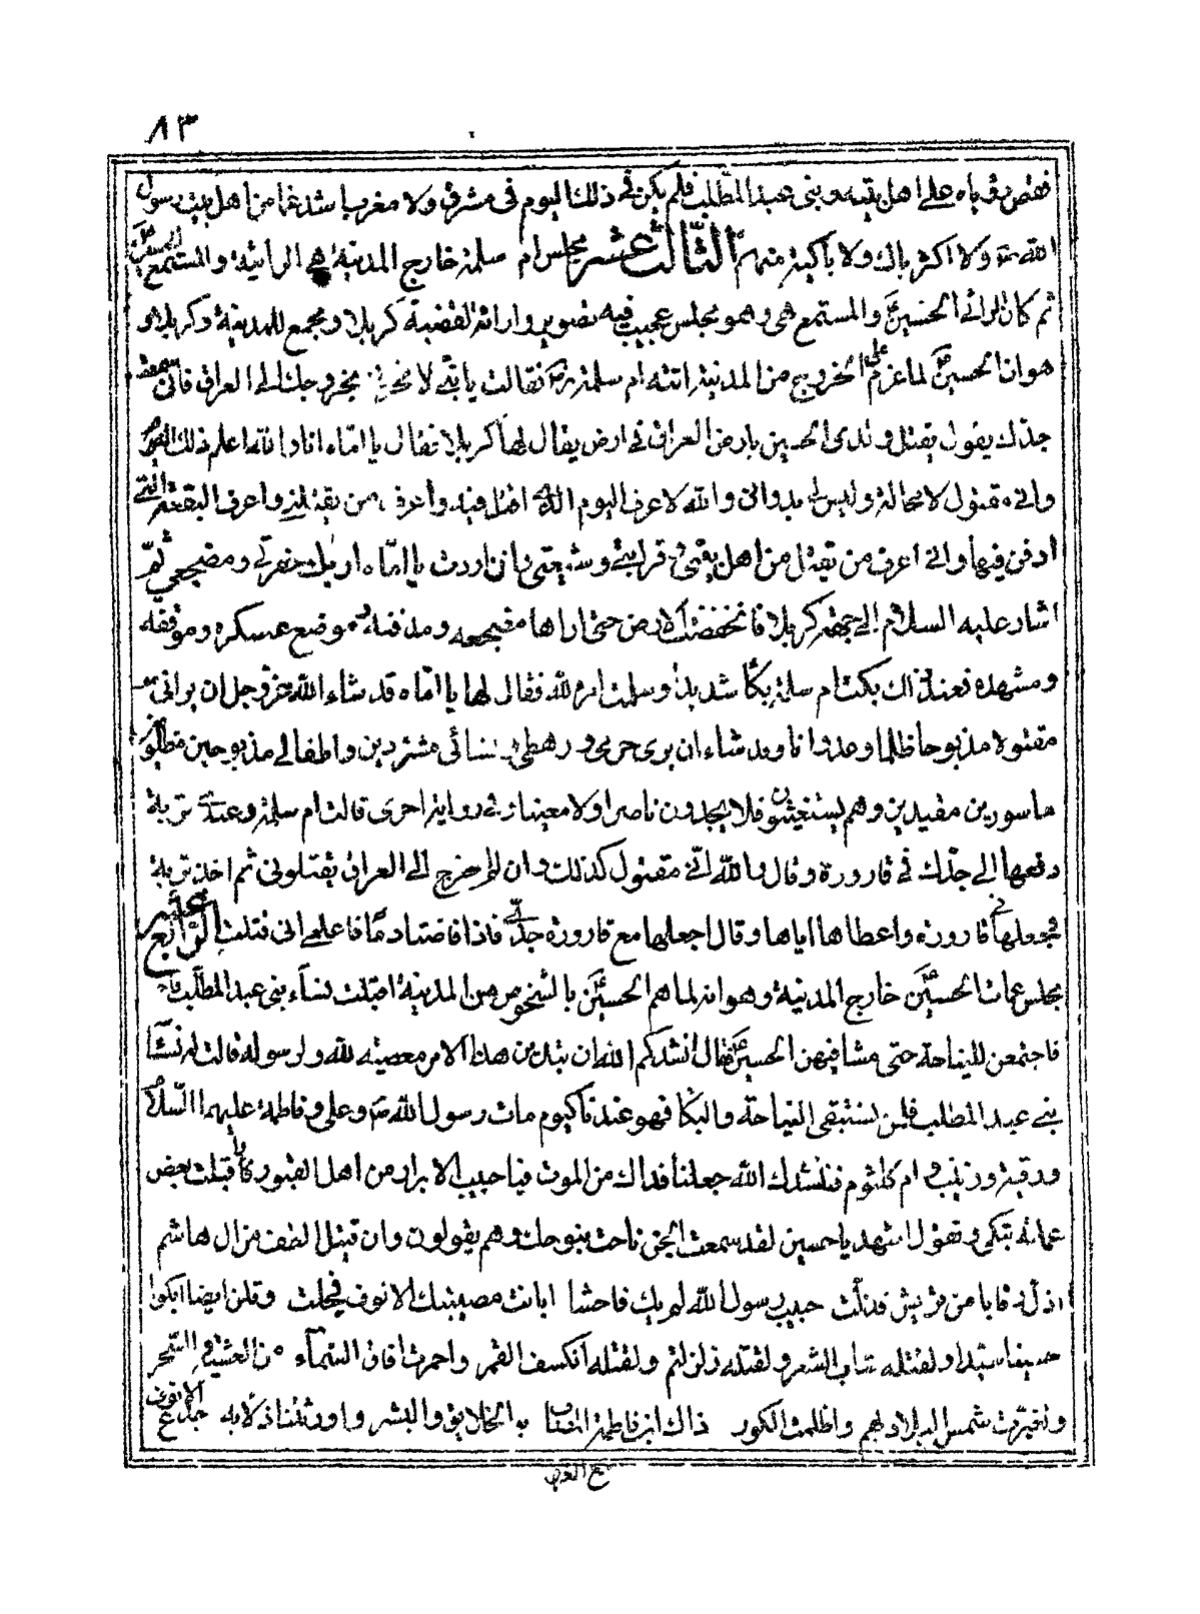 ٨٣
فقص رؤياه على اهل بيته و بنى عبد المطلب فلم يكن فى ذلك اليوم فى مشرق ولا مغرب اشد غما من اهل بيت رسول
الله ص ولا اكثر باك ولا باكية منهم الثالث عشر مجلس ام سلمة خارج المدينة هى الرائية والمستمع الحسين ع
ثم كان الرائى الحسين ع والمستمع هى وهو مجلس عجيب فيه تصوير وارائة لقضية كربلا ومجمع للمدينة وكربلا و
هو ان الحسين ع لما عزم على الخروج من المدينة اتته ام سلمة رض فقالت يا بنى لا تحزنى بخروجك الى العراق فانى سمعت
جدك يقول يقتل ولدى الحسين بارض العراق فى ارض يقال لها كربلا فقال يا اماه انا والله اعلم ذلك
وانى مقتول لا محالة وليس لى بد وانى والله لاعرف اليوم الذى اقتل فيه واعرف من يقتلنى واعرف البقعة التى
ادفن فيها وانى اعرف من يقتل من اهل بيتى و قرابتى وشيعتى وان اردت يا اماه اريك حفرتى ومضجعى ثم
اشار عليه السلام الى جهة كربلا فانخفضت الارض حتى اراها مضجعه ومدفنه وموضع عسكره وموقفه
ومشهده فعند ذلك بكت ام سلمة بكاء شديدا وسلمت امره لله فقال لها يا اماه قد شاء الله عز وجل ان يرانى
مقتولا مذبوحا ظلما وعدوانا وقد شاء ان يرى حرمى و رهطى و نسائى مشردين واطفالى مذبوحين مظلومين
ماسورين مقيدين وهم يستغيثون فلا يجدون ناصرا ولا معينا و فى رواية اخرى قالت ام سلمة وعندى تربة
دفعها الى جدك فى قارورة وقال والله انى مقتول كذلك وان لم اخرج الى العراق يقتلونى ثم اخذ تربة
فجعلها فى قارورة واعطاها اياها وقال اجعليها مع قارورة جدى فاذا فاضتا دما فاعلمى انى قتلت الرابع عشر
مجلس عمات الحسين ع خارج المدينة وهو انه لما هم الحسين ع بالشخوص من المدينة اقبلت نساء بنى عبد المطلب
فاجتمعن للنياحة حتى مشا فيهن الحسين ع فقال انشدكم الله ان تبدين هذا الامر معصيته لله ولرسوله قالت له نساء
بنى عبد المطلب فلمن نستبقى النياحة والبكا فهو عندنا كيوم مات رسول الله ص وعلى وفاطمة عليهما السلام
ورقية وزينب و ام كلثوم فننشدك الله جعلنا فداك من الموت فيا حبيب الابرار من اهل القبور واقبلت بعض
عماته تبكى وتقول اشهد يا حسين لقد سمعت الجن ناحت بنوحك وهم يقولون وان قتيل الطف من ال هاشم
اذل رقابا من قريش فذلت حبيب رسول الله لم يك فاحشا ابانت مصيبتك الانوف فجلت وقلن ايضا ابكوا
حسينا سيدا ولقتله شاب الشعر ولقتله زلزلتم ولقتله انكسف القمر واحمرت افاق السماء من العشية والسحر
وتغيرت شمس البلاد بهم واظلمت الكور ذاك ابن فاطمة المصاب به الخلايق والبشر واورثتنا ذلا به جدع الانوف
مع الغرر